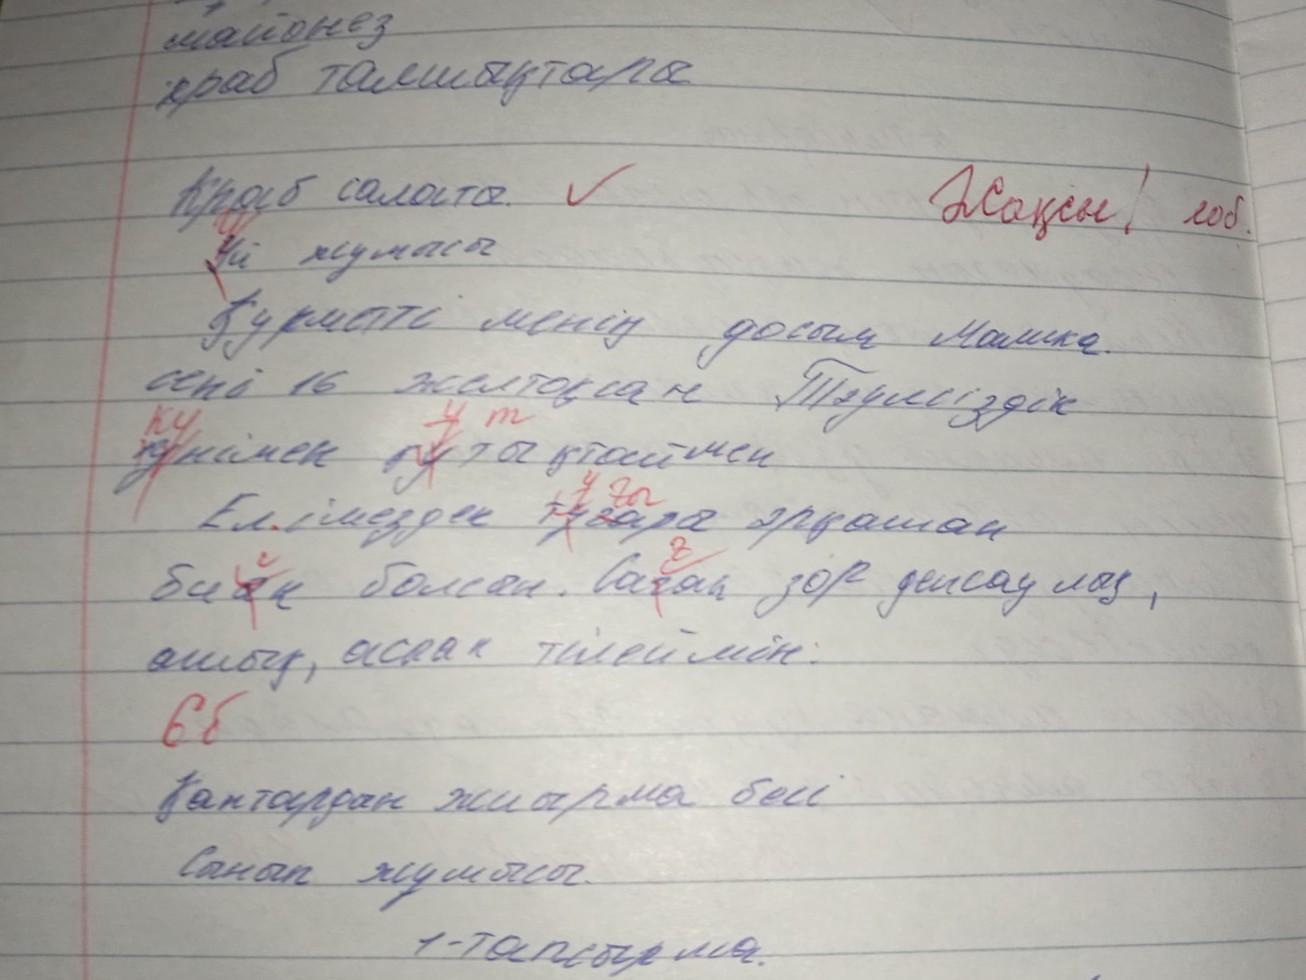 майонез
краб талшықтары
Краб салаты. Жақсы! 10б.
Үй жумасы
Құрметті менің досым Машка.
сені 16 желтоқсан Тәулсіздік
күнімен құттықтаймен
Ел.імездек тұғыры әрқашан
биік болсан. Саған зор денсаулық,
ашық, аспан тілеймін.
6б
Қантардан жиырма бесі
Сынып жұмысы.
1-тапсырма.